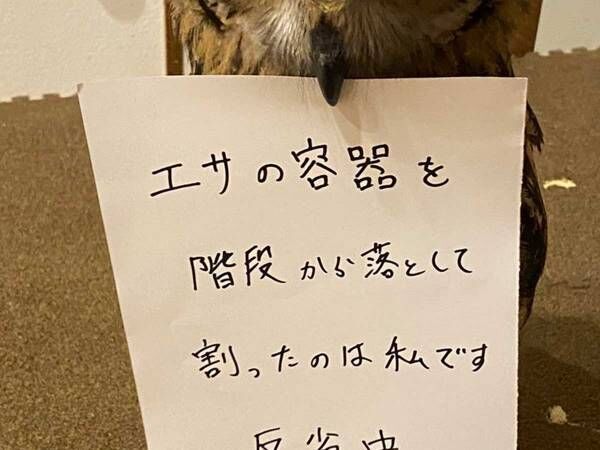 エサの容器を
階段から落として
割ったのは私です
反省中